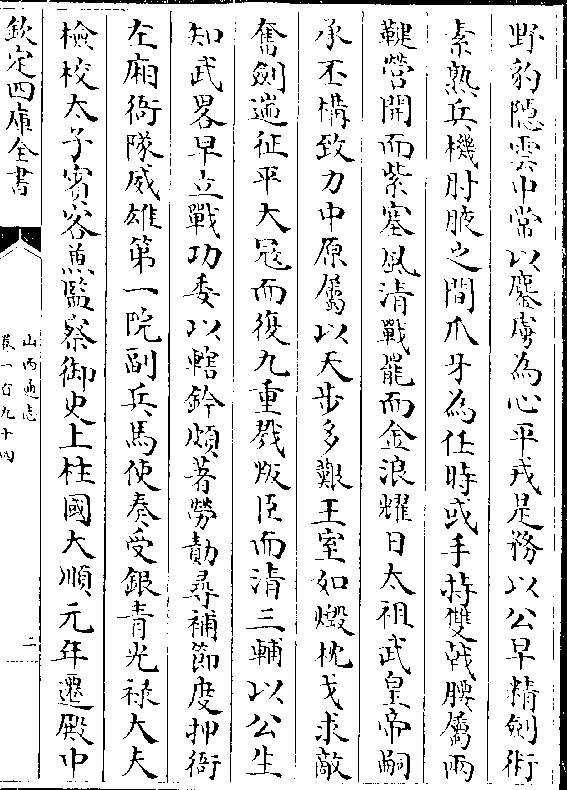 野豹隱雲中常以鏖虜為心平戎是務以公早精劍術
素熟兵機肘腋之間爪牙為任時或手持雙戟腰屬兩
鞬營開而紫塞風清戰罷而金浪耀日太祖武皇帝嗣
承丕構致力中原屬以天步多艱王室如燬枕戈求敵
奮劍遄征平大冦而復九重戮叛臣而清三輔以公生
知武畧早立戰功委以轄鈐頗著勞勣尋補節度押衙
左廂衙隊威雄第一院副兵馬使奏受銀青光禄大夫
檢校太子賓客兼監察御史上柱國大順元年遷殿中
欽定四庫全書
山西通志
卷一百九十四
二